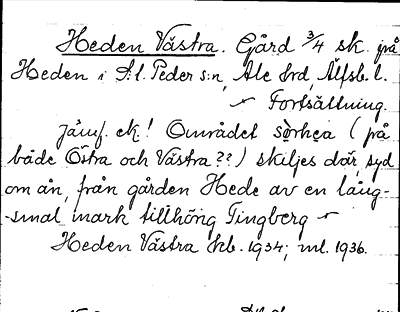 Heden Västra. Gård 3/4 sk. på
Heden i St. Peder s:n, Ale hrd, Älfsb. l.
Fortsättning.
Jämf. ek! Området (på
både Östra och Västra??) skiljes där, syd
om ån, från gården Hede av en lång-
-smal mark tillhörig Tingberg
Heden Västra Jrb. 1934; ml. 1936.